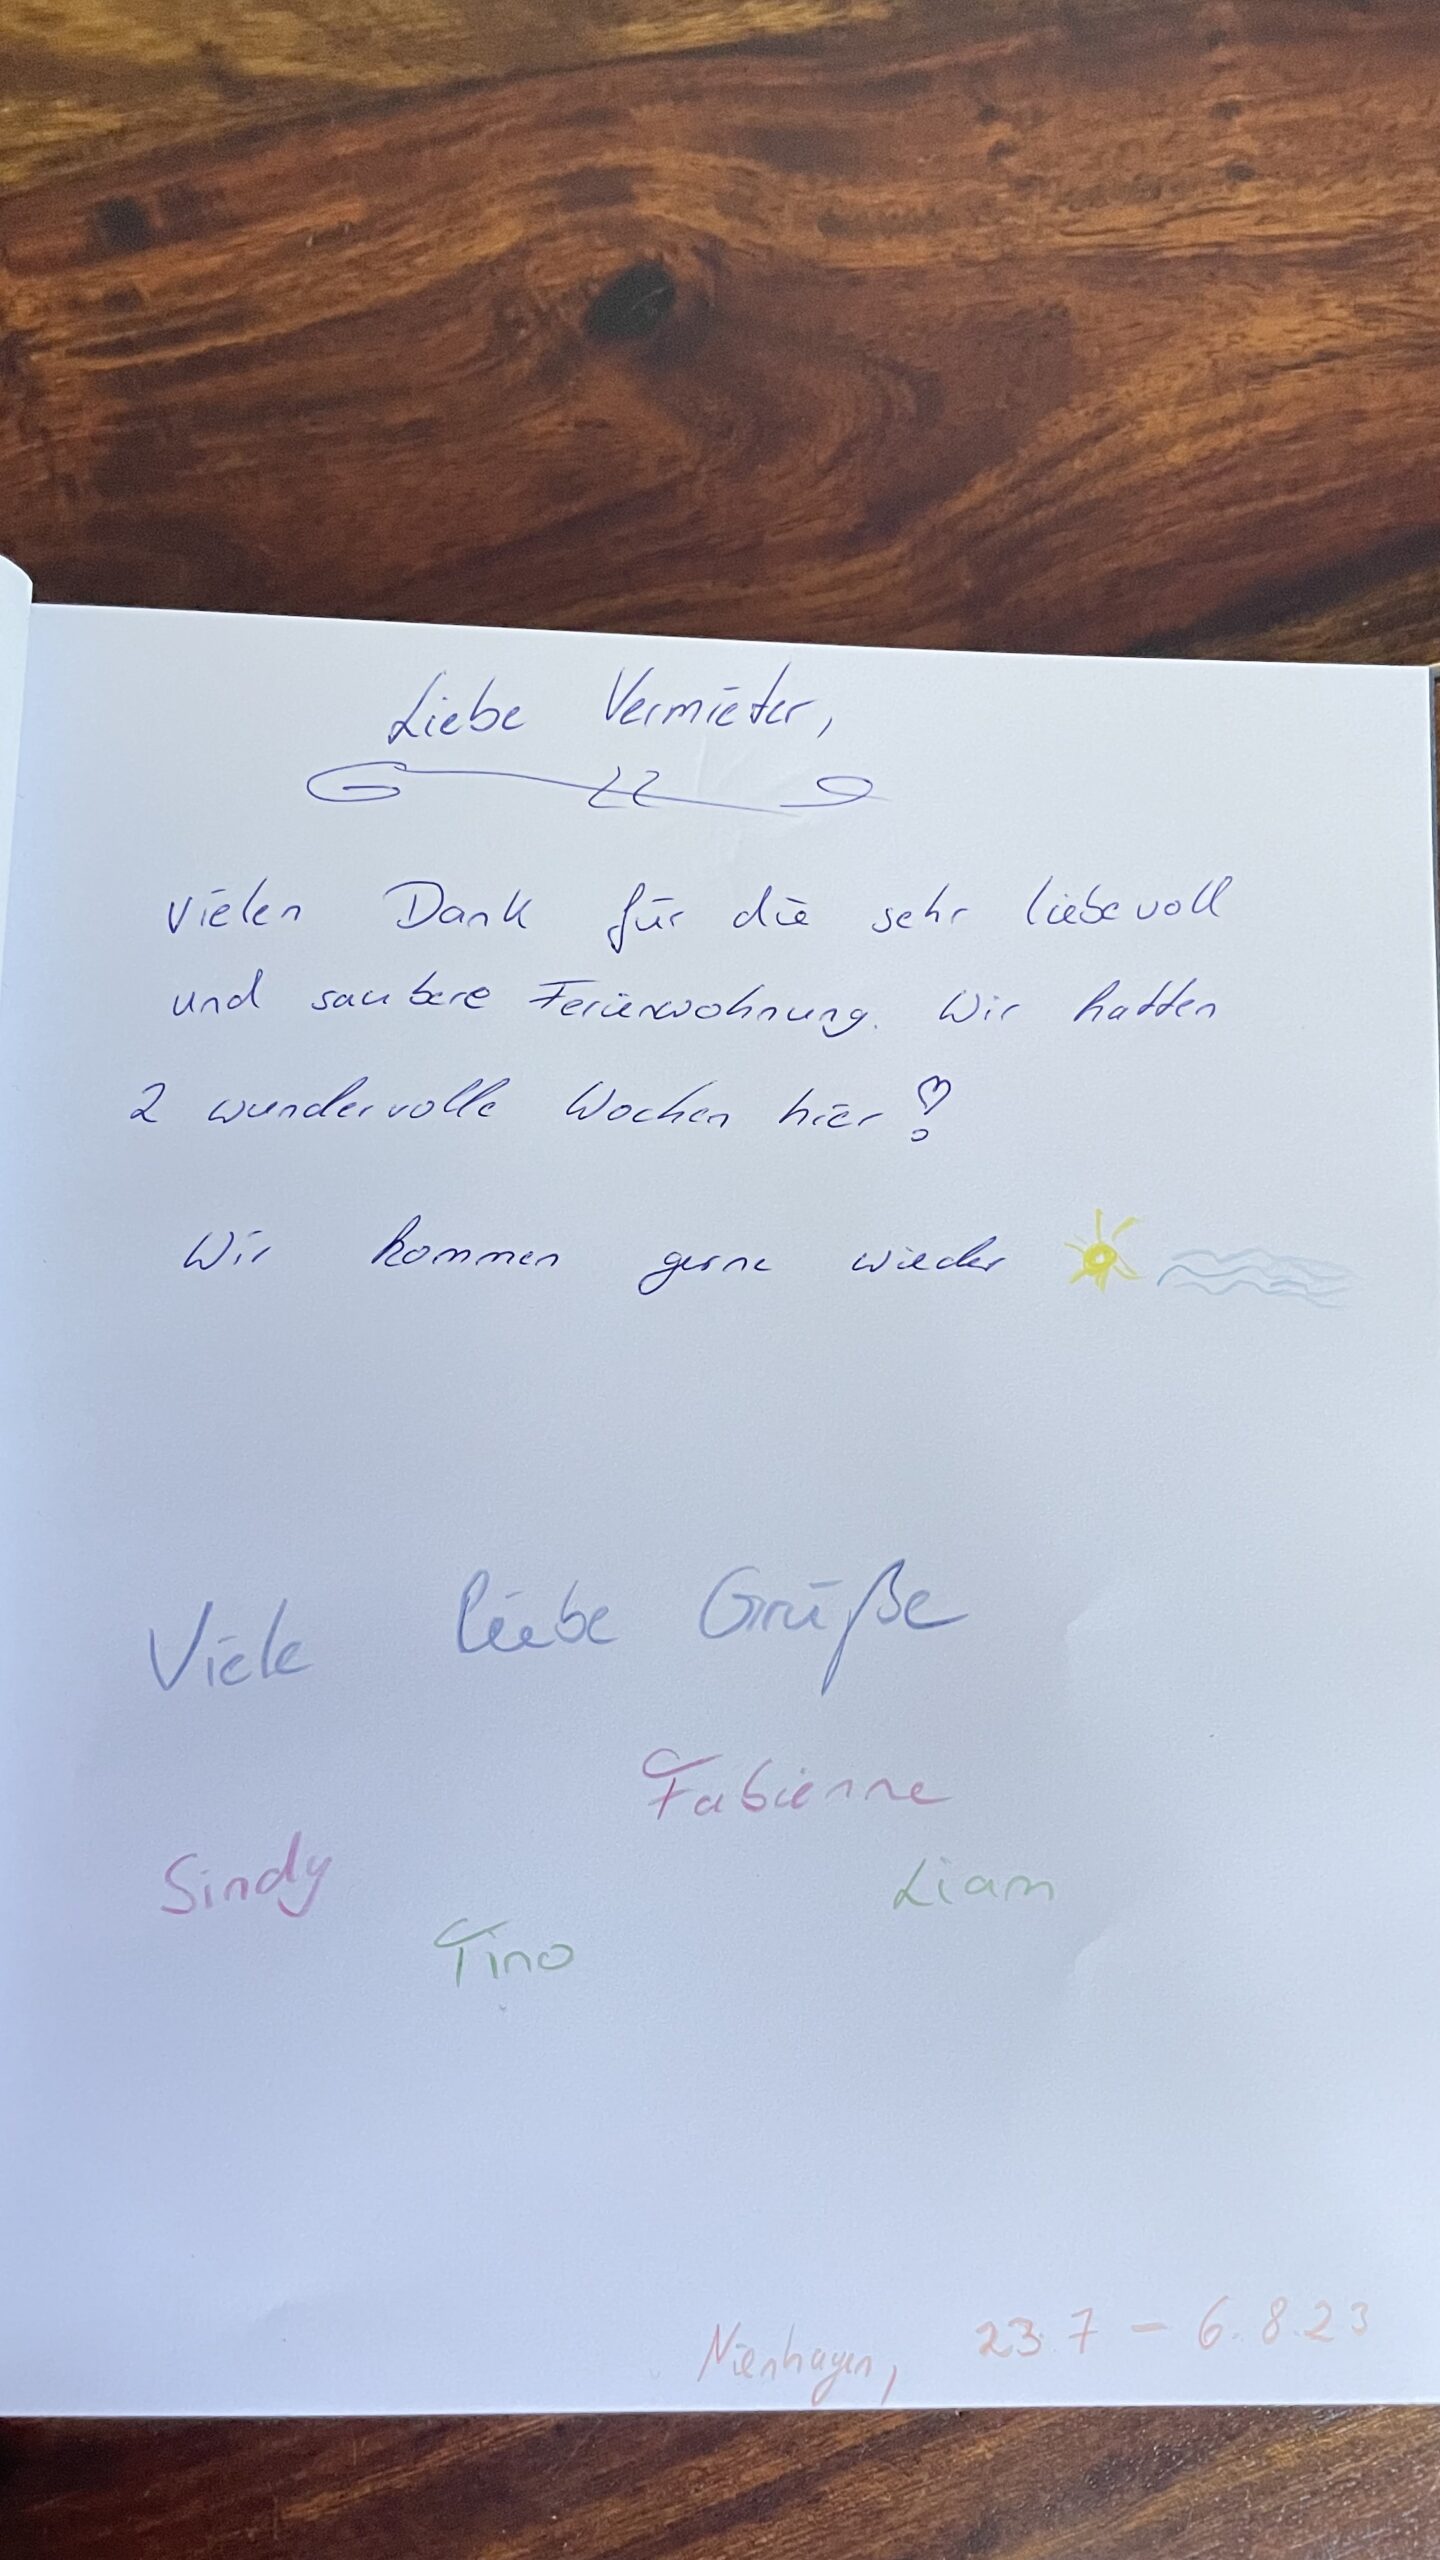 Liebe Vermieter,
Vielen Dank für die sehr liebevoll
und saubere Ferienwohnung. Wir hatten
2 wundervolle Wochen hier!
Wir kommen gerne wieder
Viele liebe Grüße
Fabienne
Sindy
Liam
Tino
Nienhagen, 23.7 – 6.8.23